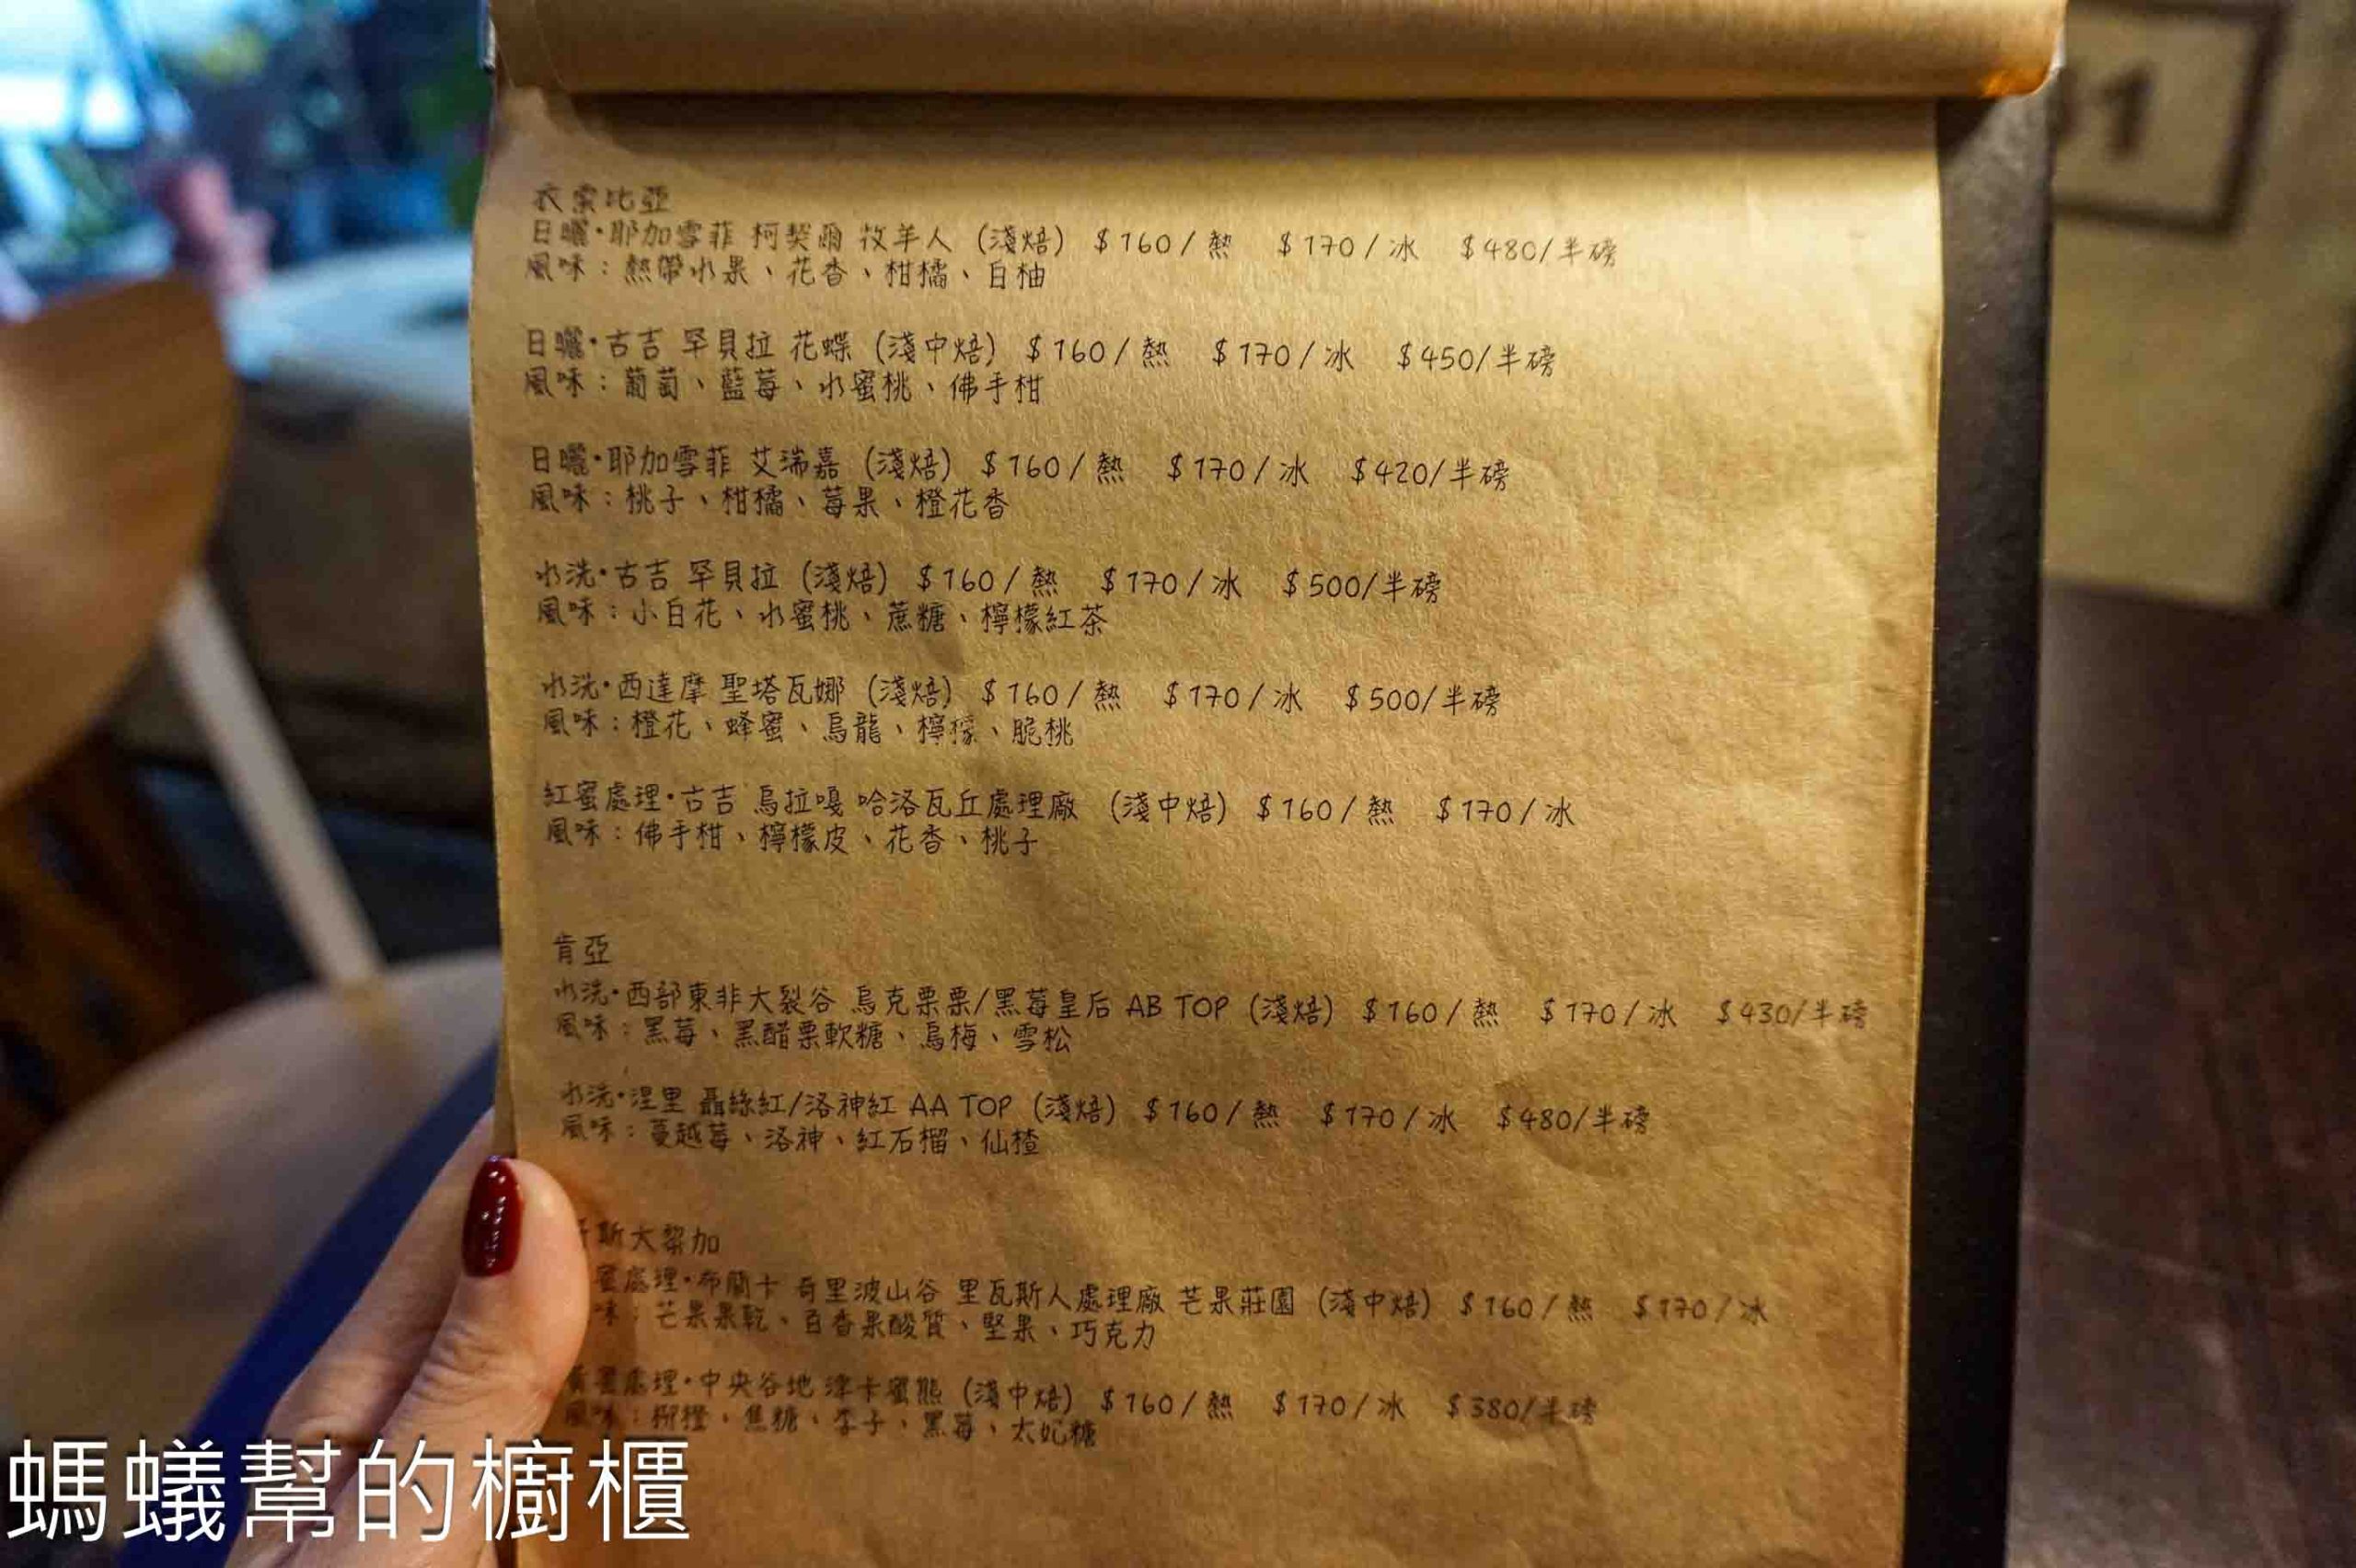 衣索比亞
日曬·耶加雪菲 柯契爾 牧羊人 (淺焙) $160/熱 $170/冰 $480/半磅
風味：熱帶水果、花香、柑橘、白柚
日曬·古吉 罕貝拉 花蝶 (淺中焙) $160/熱 $170/冰 $450/半磅
風味：葡萄、藍莓、水蜜桃、佛手柑
日曬·耶加雪菲 艾瑞嘉 (淺焙) $160/熱 $170/冰 $420/半磅
風味：桃子、柑橘、莓果、橙花香
水洗·古吉 罕貝拉 (淺焙) $160/熱 $170/冰 $500/半磅
風味：小白花、水蜜桃、蔗糖、檸檬紅茶
水洗·西達摩 聖塔瓦娜 (淺焙) $160/熱 $170/冰 $500/半磅
風味：橙花、蜂蜜、烏龍、檸檬、脆桃
紅蜜處理·古吉 烏拉嘎 哈洛瓦丘處理廠 (淺中焙) $160/熱 $170/冰
風味：佛手柑、檸檬皮、花香、桃子
肯亞
水洗·西部東非大裂谷 烏克栗栗/黑莓皇后 AB TOP (淺焙) $160/熱 $170/冰 $430/半磅
風味：黑莓、黑醋栗軟糖、烏梅、雪松
水洗·涅里 聶絲紅/洛神紅 AA TOP (淺焙) $160/熱 $170/冰 $480/半磅
風味：蔓越莓、洛神、紅石榴、仙楂
斯大黎加
蜜處理·布蘭卡 奇里波山谷 里瓦斯人處理廠 芒果莊園 (淺中焙) $160/熱 $170/冰
味：芒果果乾、百香果酸質、堅果、巧克力
黃蜜處理·中央谷地 津卡蜜熊 (淺中焙) $160/熱 $170/冰 $380/半磅
風味：柳橙、焦糖、李子、黑莓、太妃糖
螞蟻幫的櫥櫃